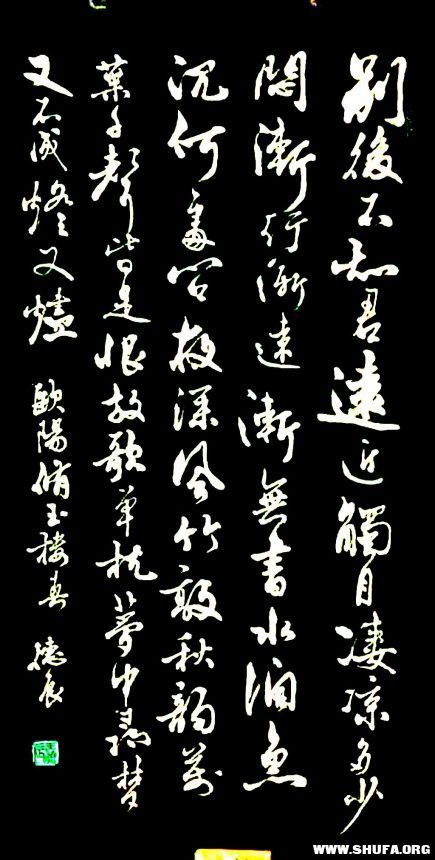 别後不知君遠近觸目凄涼多少
悶漸行漸遠漸無書水闊魚
沉何處問夜深風竹敲秋韻萬
葉千聲皆是恨故欹單枕夢中尋梦
又不成燈又燼 歐陽脩玉樓春
WWW.SHUFA.ORG